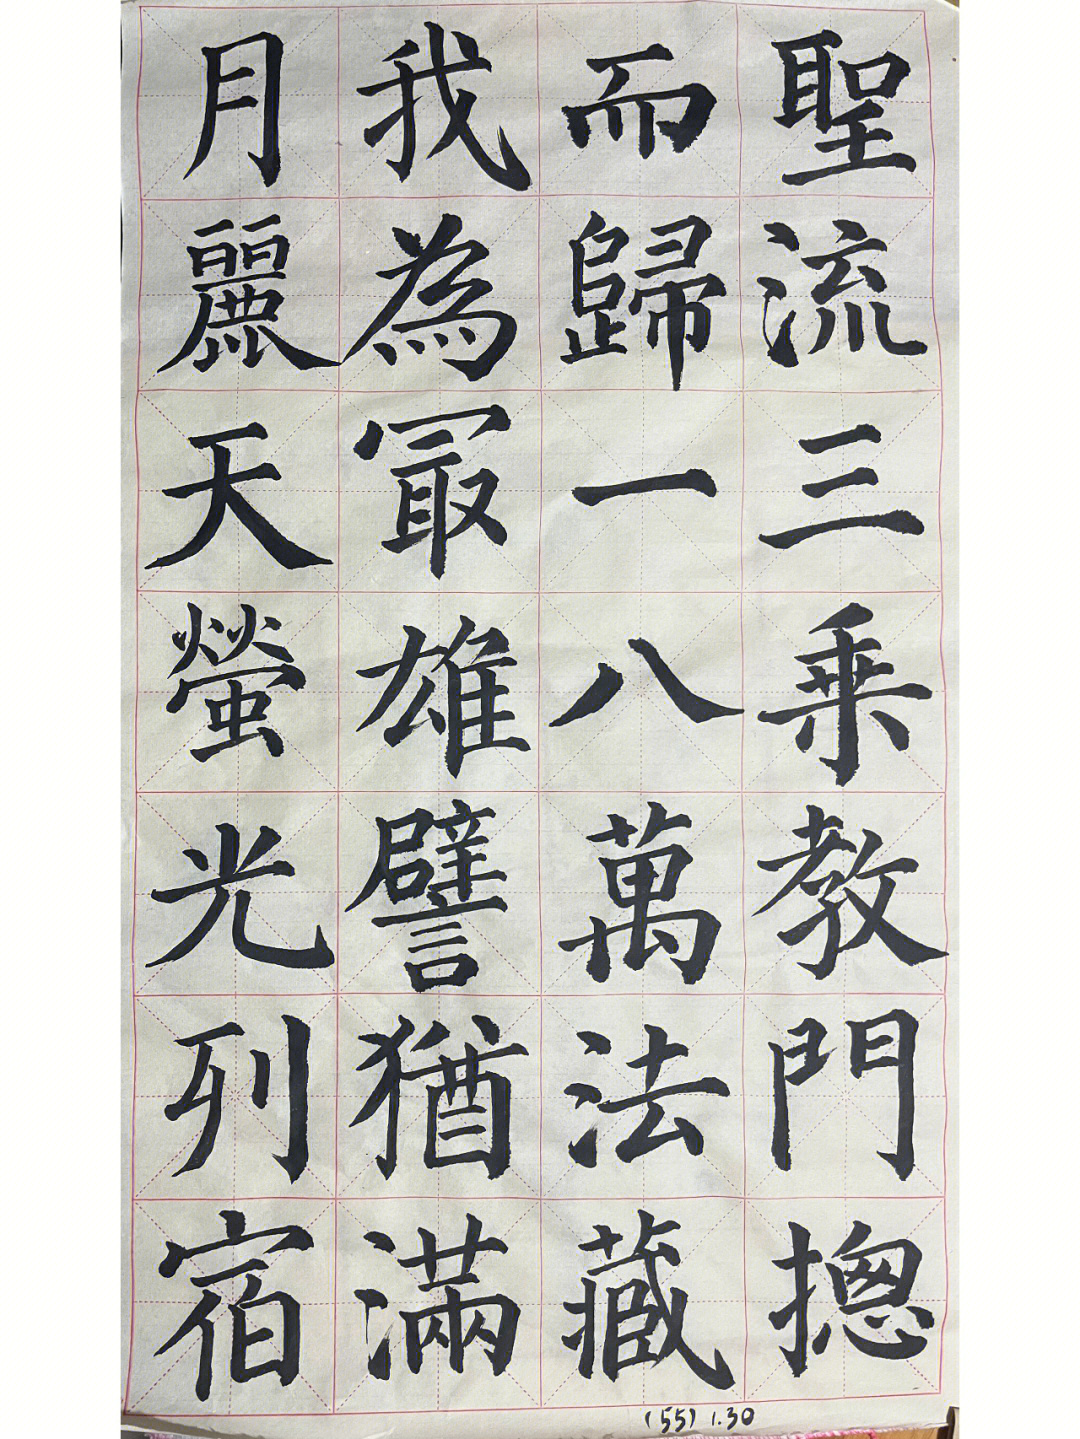 聖流三乗教門摠
而歸一八萬法蔵
我為冣雄譬猶滿
月麗天螢光列宿
(55) 1.30